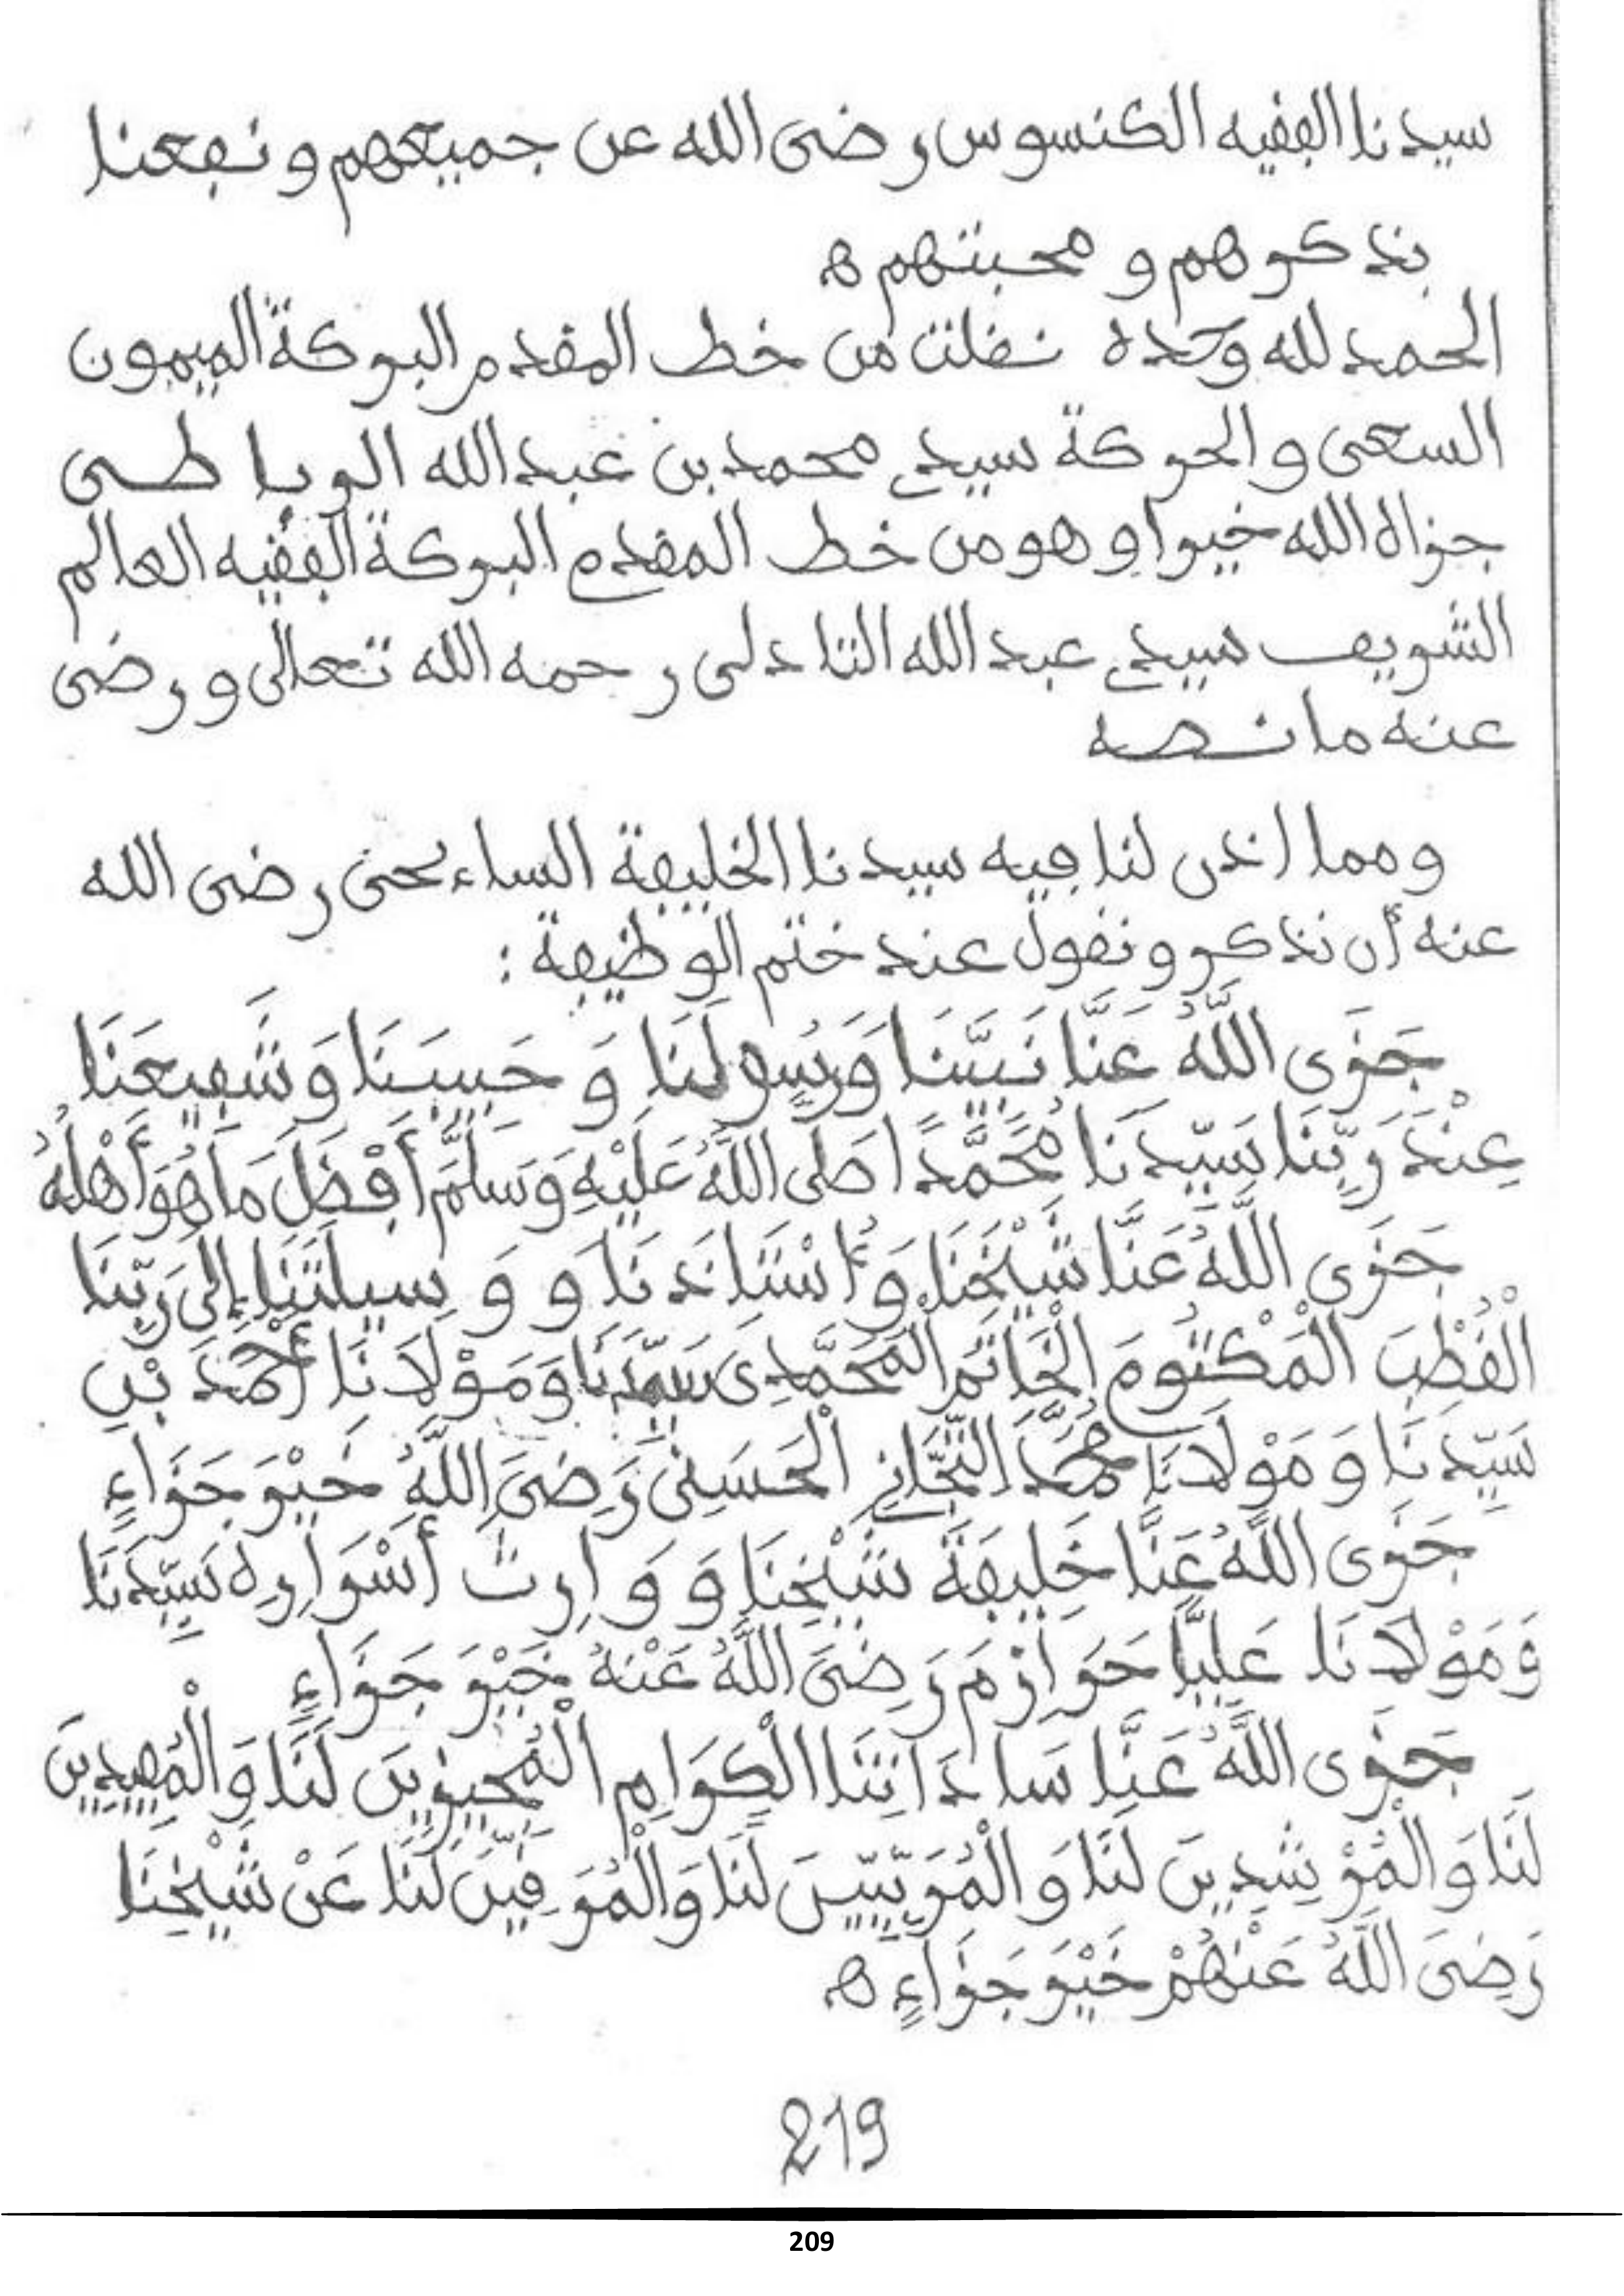 سيدنا الفقيه الكنسوس رضى الله عن جميعهم ونفعنا
بذكرهم ومحبتهم ه
الحمد لله وحده نقلت من خط المقدم البركة الميمون
السعى والحركة سيدي محمد بن عبد الله الرباطى
جزاه الله خيرا وهو من خط المقدم البركة الفقيه العالم
الشريف سيدي عبد الله التادلى رحمه الله تعالى ورضى
عنه ما نصه
ومما اذن لنا فيه سيدنا الخليفة الساءحى رضى الله
عنه أن نذكر ونقول عند ختم الوظيفة :
جَزَى اللَّهُ عَنَّا نَبِيَّنَا وَرَسُولَنَا وَ حَبِيبَنَا وَ شَفِيعَنَا
عِنْدَ رَبِّنَا سَيِّدَنَا مُحَمَّدًا صَلَى اللَّهُ عَلَيْهِ وَسَلَّمَ أَفْضَلَ مَا هُوَ أَهْلُهُ
جَزَى اللَّهُ عَنَّا شَيْخَنَا وَ أُسْتَاذَنَا وَ وَسِيلَتَنَا إِلَى رَبِّنَا
الْقُطْبَ الْمَكْتُومَ الْخَاتَمَ الْمُحَمَّدِى سَيِّدَنَا وَمَوْلَانَا أَحْمَدَ بْنِ
سَيِّدِنَا وَ مَوْلَانَا مُحَمَّدَ التِّجَّانِي الْحَسَنِى رَضِىَ اللَّهُ خَيْرَ جَزَاءٍ
جَزَى اللَّهُ عَنَّا خَلِيفَةَ شَيْخِنَا وَ وَارِثَ أَسْرَارِهِ سَيِّدَنَا
وَمَوْلَانَا عَلِيًّا حَرَازِمَ رَضِىَ اللَّهُ عَنْهُ خَيْرَ جَزَاءٍ
جَزَى اللَّهُ عَنَّا سَادَاتِنَا الْكِرَامِ الْمُجِيزِينَ لَنَا وَالْمُفِيدِينَ
لَنَا وَ الْمُرْشِدِينَ لَنَا وَ الْمُرَبِّيِينَ لَنَا وَالْمُرَقِيِّنَ لَنَا عَنْ شَيْخِنَا
رَضِىَ اللَّهُ عَنْهُمْ خَيْرَ جَزَاءٍ ه
219
209